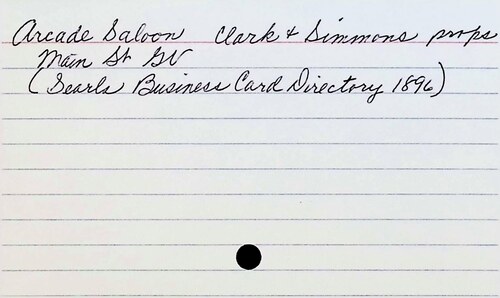 Arcade Saloon Clark & Simmons props
Main St GV
(Searls Business Card Directory 1896)